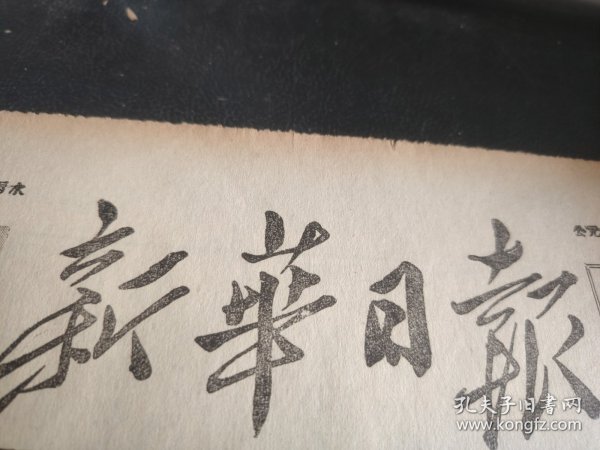 新華日報
公元
孔夫子旧書网
www.kongfz.com